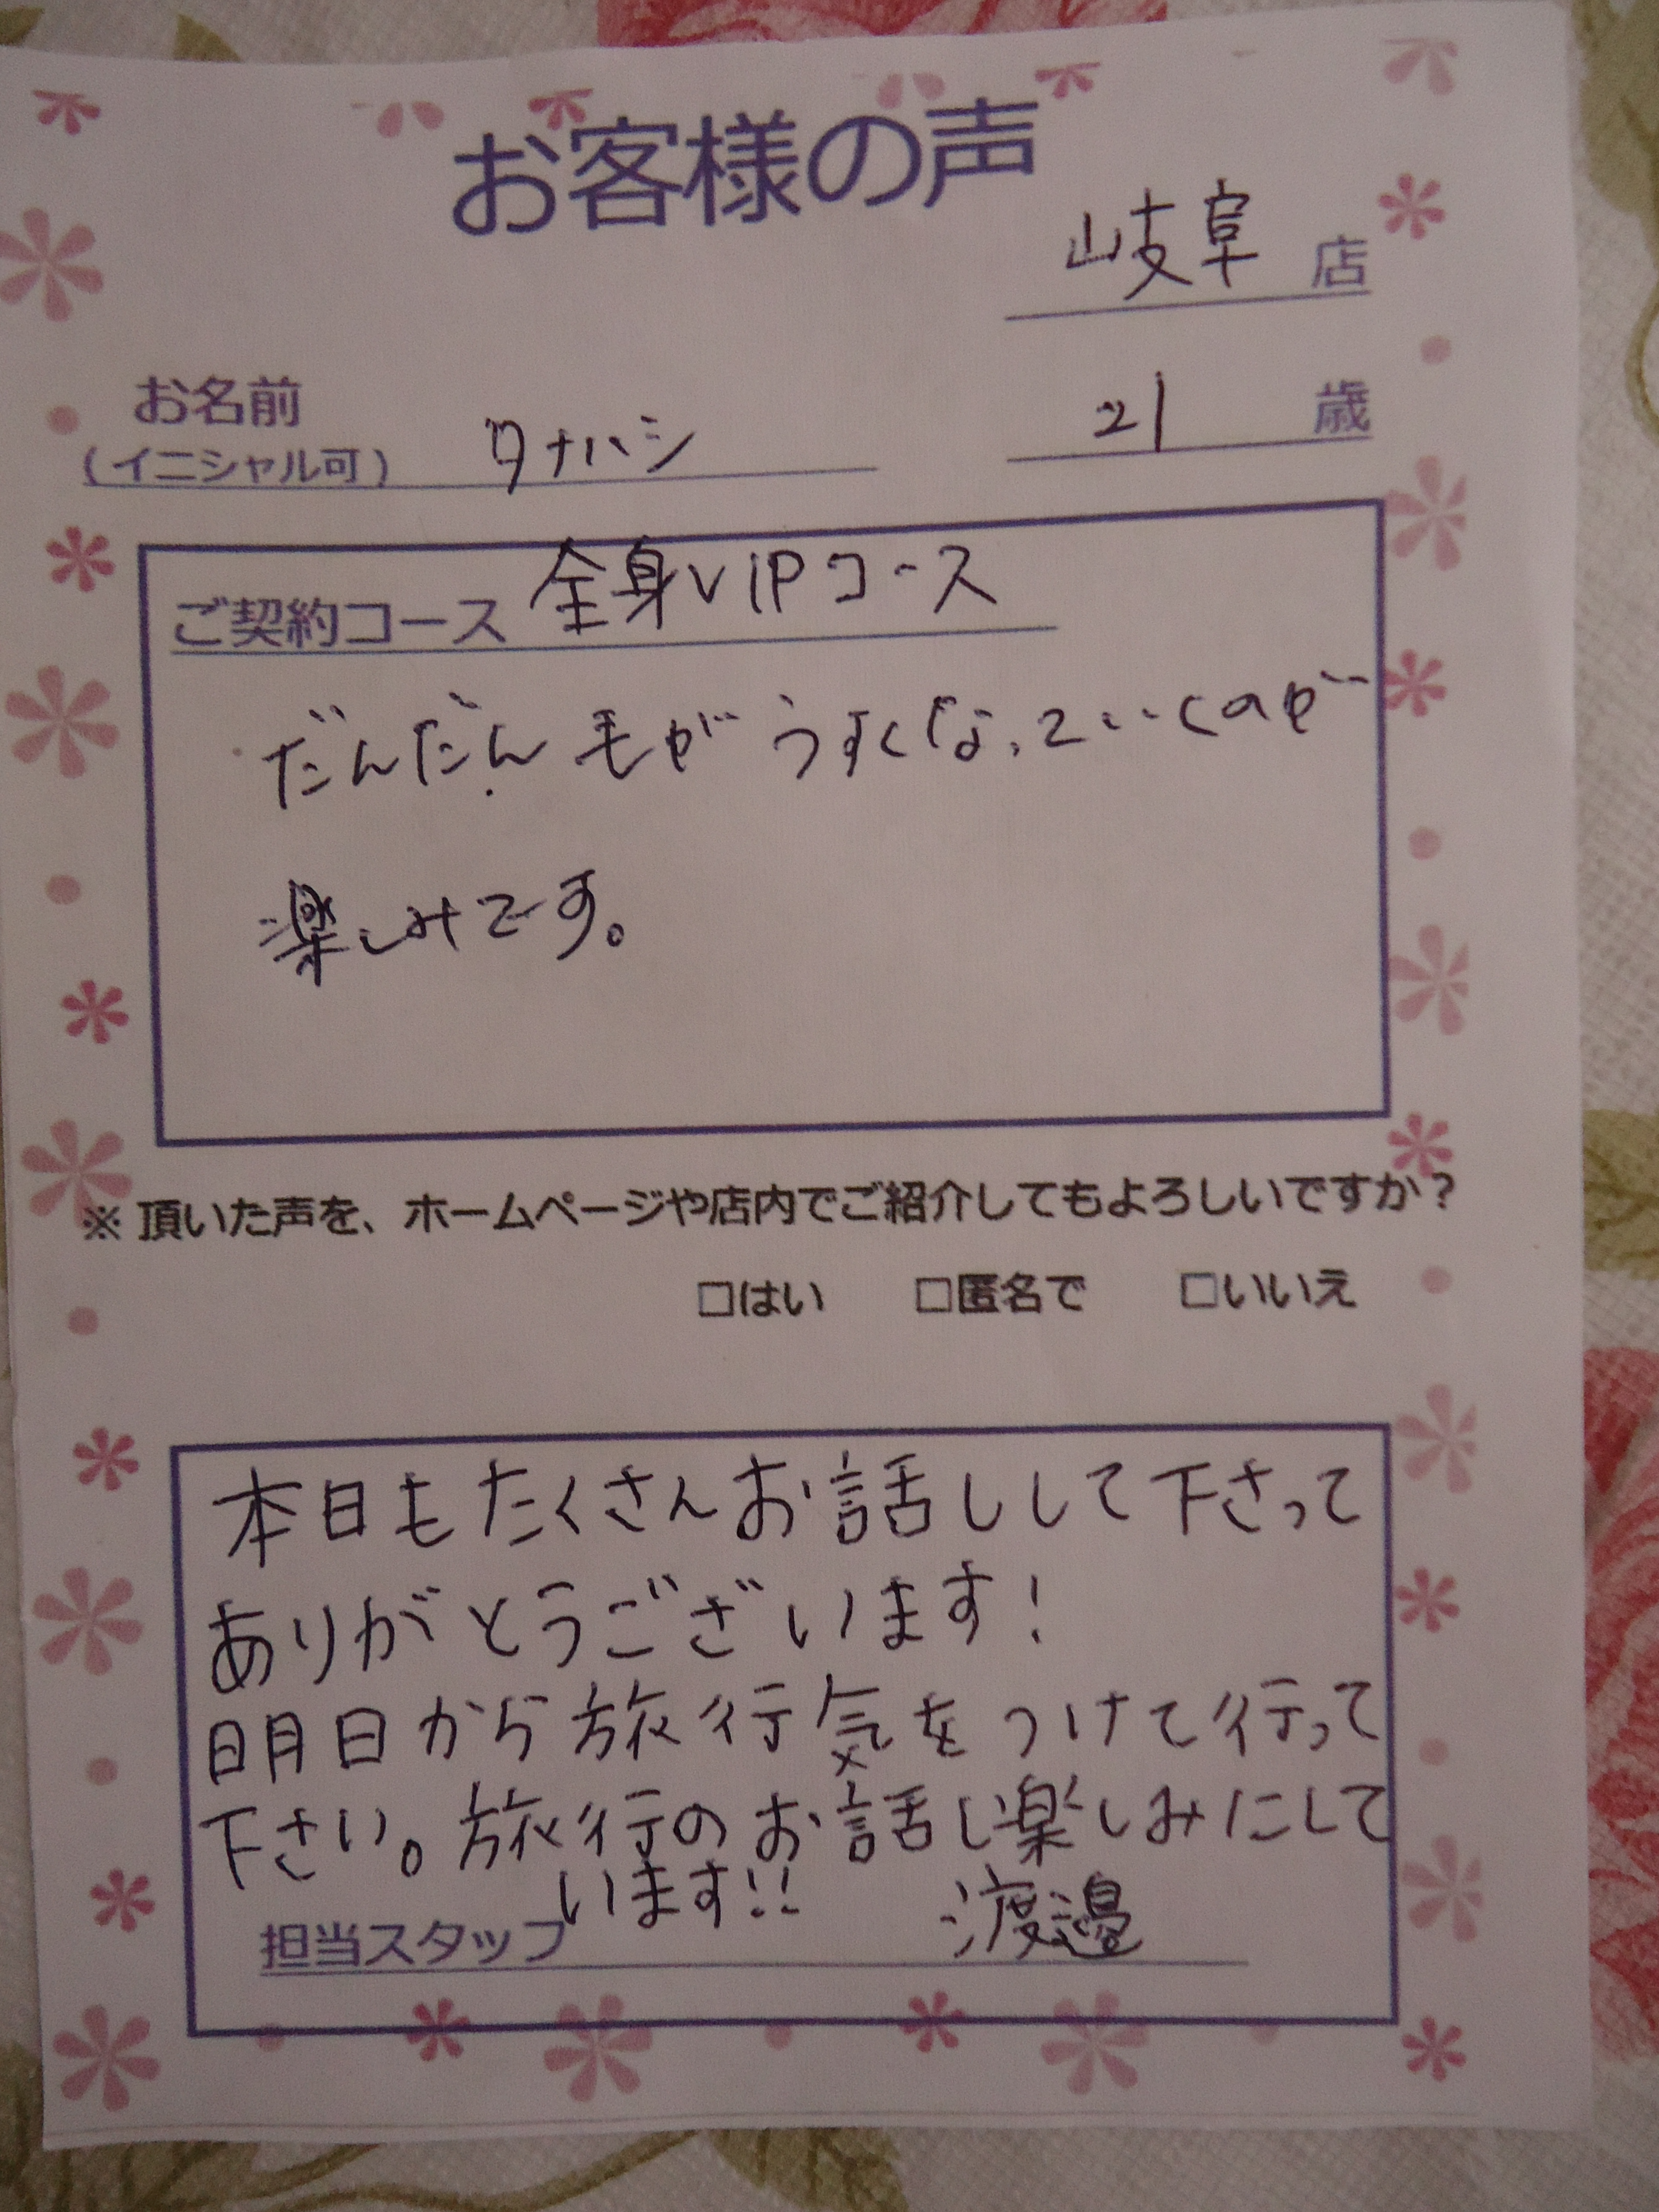 お客様の声
岐阜 店
お名前
(イニシャル可) タナハシ
21 歳
ご契約コース 全身VIPコース
だんだん毛がうすくなっていくのが
楽しみです。
※頂いた声を、ホームページや店内でご紹介してもよろしいですか?
□はい □匿名で □いいえ
本日もたくさんお話しして下さって
ありがとうございます!
明日から旅行気をつけて行って
下さい。旅行のお話し楽しみにして
います!!
担当スタッフ 渡邉